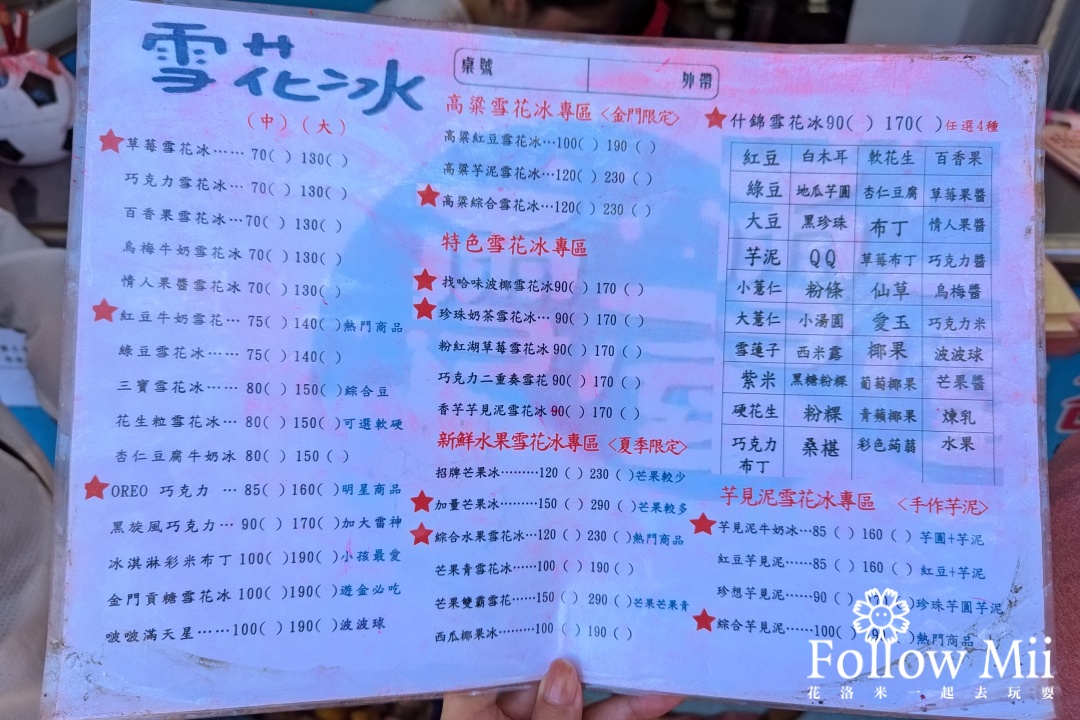 雪花冰
桌號 外帶
(中)(大)
草莓雪花冰…… 70( ) 130( )
巧克力雪花冰… 70( ) 130( )
百香果雪花冰…70( ) 130( )
烏梅牛奶雪花冰 70( ) 130( )
情人果醬雪花冰 70( ) 130( )
紅豆牛奶雪花… 75( ) 140( )熱門商品
綠豆雪花冰…… 75( ) 140( )
三寶雪花冰…… 80( ) 150( )綜合豆
花生粒雪花冰… 80( ) 150( )可選軟硬
杏仁豆腐牛奶冰 80( ) 150( )
OREO 巧克力 … 85( ) 160( )明星商品
黑旋風巧克力… 90( ) 170( )加大雷神
冰淇淋彩米布丁 100( )190( )小孩最愛
金門貢糖雪花冰 100( )190( )遊金必吃
啵啵滿天星……100( )190( )波波球
高粱雪花冰專區〈金門限定〉
高粱紅豆雪花冰…100( ) 190 ( )
高粱芋泥雪花冰…120( ) 230 ( )
高粱綜合雪花冰…120( ) 230 ( )
特色雪花冰專區
找哈味波椰雪花冰90( ) 170 ( )
珍珠奶茶雪花冰… 90( ) 170 ( )
粉紅湖草莓雪花冰 90( ) 170 ( )
巧克力二重奏雪花 90( ) 170 ( )
香芋芋見泥雪花冰 90( ) 170 ( )
新鮮水果雪花冰專區〈夏季限定〉
招牌芒果冰………120 ( ) 230 ( )芒果較少
加量芒果冰………150 ( ) 290 ( )芒果較多
綜合水果雪花冰…120 ( ) 230 ( )熱門商品
芒果青雪花冰……100 ( ) 190 ( )
芒果雙霸雪花……150 ( ) 290 ( )芒果芒果青
西瓜椰果冰………100 ( ) 190 ( )
什錦雪花冰90( ) 170( )任選4種
紅豆 白木耳 軟花生 百香果
綠豆 地瓜芋圓 杏仁豆腐 草莓果醬
大豆 黑珍珠 布丁 情人果醬
芋泥 QQ 草莓布丁 巧克力醬
小薏仁 粉條 仙草 烏梅醬
大薏仁 小湯圓 愛玉 巧克力米
雪蓮子 西米露 椰果 波波球
紫米 黑糖粉粿 葡萄椰果 芒果醬
硬花生 粉粿 青蘋椰果 煉乳
巧克力布丁 桑椹 彩色蒟蒻 水果
芋見泥雪花冰專區 〈手作芋泥〉
芋見泥牛奶冰…85 ( ) 160 ( ) 芋圓+芋泥
紅豆芋見泥……85 ( ) 160 ( ) 紅豆+芋泥
珍想芋見泥……90 ( ) 170 ( )珍珠芋圓芋泥
綜合芋見泥……100( ) 190 ( )熱門商品
Follow Mii
花洛米一起去玩耍